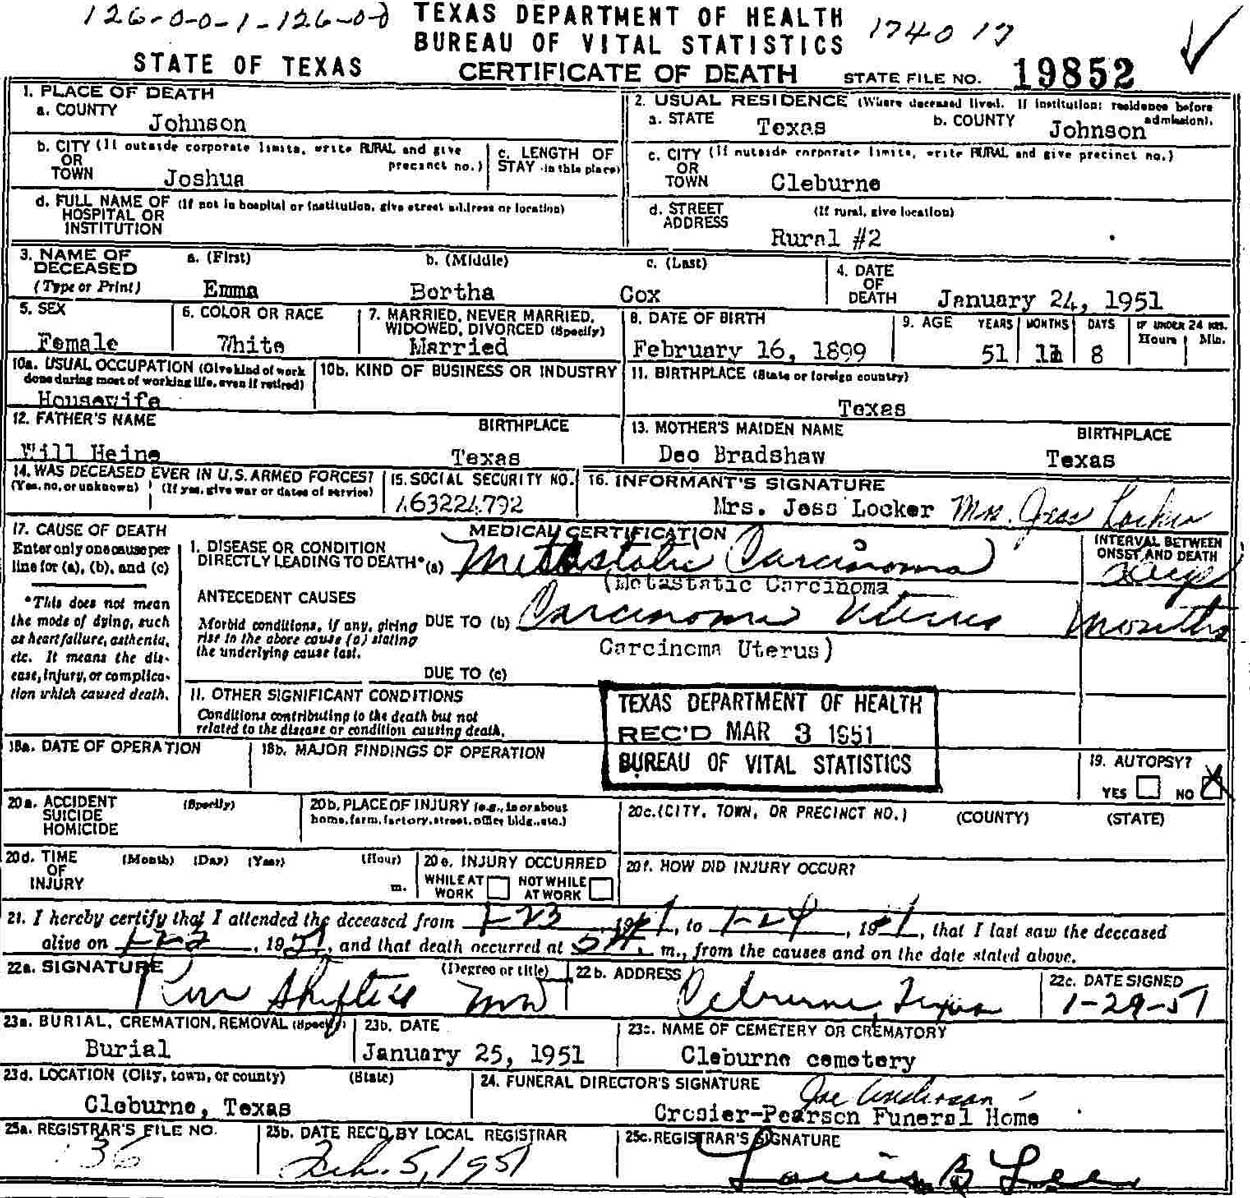 126-0-0-1-126-0-0
TEXAS DEPARTMENT OF HEALTH
BUREAU OF VITAL STATISTICS
174017
STATE OF TEXAS
CERTIFICATE OF DEATH
STATE FILE NO. 19852
1. PLACE OF DEATH
a. COUNTY
Johnson
2. USUAL RESIDENCE (Where deceased lived. If institution: residence before admission).
a. STATE Texas
b. COUNTY Johnson
b. CITY (If outside corporate limits, write RURAL and give precinct no.)
OR
TOWN Joshua
c. LENGTH OF STAY (in this place)
c. CITY (If outside corporate limits, write RURAL and give precinct no.)
OR
TOWN Cleburne
d. FULL NAME OF HOSPITAL OR INSTITUTION (If not in hospital or institution, give street address or location)
d. STREET ADDRESS (If rural, give location)
Rural #2
3. NAME OF DECEASED (Type or Print)
a. (First) b. (Middle) c. (Last)
Emma Bertha Cox
4. DATE OF DEATH January 24, 1951
5. SEX
Female
6. COLOR OR RACE
White
7. MARRIED, NEVER MARRIED, WIDOWED, DIVORCED (Specify)
Married
8. DATE OF BIRTH
February 16, 1899
9. AGE YEARS MONTHS DAYS IF UNDER 24 HRS. Hours Min.
51 11 8
10a. USUAL OCCUPATION (Give kind of work done during most of working life, even if retired)
Housewife
10b. KIND OF BUSINESS OR INDUSTRY
11. BIRTHPLACE (State or foreign country)
Texas
12. FATHER'S NAME BIRTHPLACE
Will Heine Texas
13. MOTHER'S MAIDEN NAME BIRTHPLACE
Deo Bradshaw Texas
14. WAS DECEASED EVER IN U.S. ARMED FORCES?
(Yes, no, or unknown) (If yes, give war or dates of service)
15. SOCIAL SECURITY NO.
463224792
16. INFORMANT'S SIGNATURE
Mrs. Jess Locker Mrs. Jess Locker
17. CAUSE OF DEATH
Enter only one cause per line for (a), (b), and (c)
*This does not mean the mode of dying, such as heart failure, asthenia, etc. It means the disease, injury, or complication which caused death.
MEDICAL CERTIFICATION
INTERVAL BETWEEN ONSET AND DEATH
I. DISEASE OR CONDITION DIRECTLY LEADING TO DEATH* (a) Metastatic Carcinoma
(Metastatic Carcinoma
ANTECEDENT CAUSES
Morbid conditions, if any, giving rise to the above cause (a) stating the underlying cause last.
DUE TO (b) Carcinoma Uterus Months
Carcinoma Uterus)
DUE TO (c)
II. OTHER SIGNIFICANT CONDITIONS
Conditions contributing to the death but not related to the disease or condition causing death.
TEXAS DEPARTMENT OF HEALTH
REC'D MAR 3 1951
BUREAU OF VITAL STATISTICS
18a. DATE OF OPERATION
18b. MAJOR FINDINGS OF OPERATION
19. AUTOPSY?
YES NO X
20a. ACCIDENT SUICIDE HOMICIDE (Specify)
20b. PLACE OF INJURY (e.g., in or about home, farm, factory, street, office bldg., etc.)
20c. (CITY, TOWN, OR PRECINCT NO.) (COUNTY) (STATE)
20d. TIME OF INJURY (Month) (Day) (Year) (Hour) m.
20e. INJURY OCCURRED
WHILE AT WORK NOT WHILE AT WORK
20f. HOW DID INJURY OCCUR?
21. I hereby certify that I attended the deceased from 1-23, 1951, to 1-24, 1951, that I last saw the deceased
alive on 1-23, 1951, and that death occurred at 5 A. m., from the causes and on the date stated above.
22a. SIGNATURE (Degree or title)
MD
22b. ADDRESS
Cleburne, Texas
22c. DATE SIGNED
1-29-51
23a. BURIAL, CREMATION, REMOVAL (Specify)
Burial
23b. DATE
January 25, 1951
23c. NAME OF CEMETERY OR CREMATORY
Cleburne cemetery
23d. LOCATION (City, town, or county) (State)
Cleburne, Texas
24. FUNERAL DIRECTOR'S SIGNATURE
Joe Anderson
Crosier-Pearson Funeral Home
25a. REGISTRAR'S FILE NO.
36
25b. DATE REC'D BY LOCAL REGISTRAR
Feb. 5, 1951
25c. REGISTRAR'S SIGNATURE
Louis B Lee